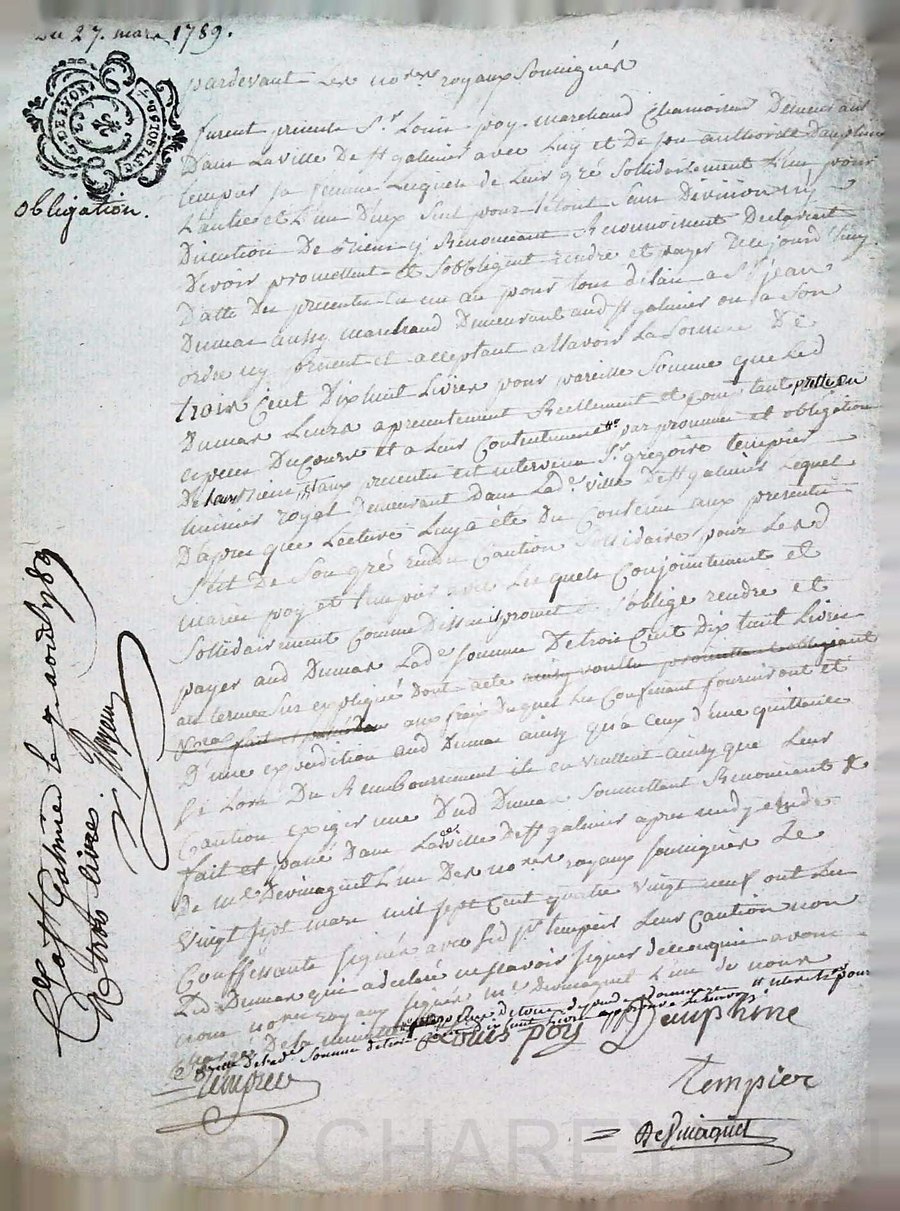 Du 27. mars 1789.
G. DE LYON
obligation.
pardevant Les no.res royaux Soussignés
furent presents S.r Louis poy marchand Chamoiseur Demeurant
Dans La ville De St galmier avec Luy et De Son authorité Dauphine
tempier Sa femme Lesquels de Leur gré Sollidairement L'un pour
L'autre et L'un D'eux Seul pour Le tout Sans Division ny
Discution De Biens y Renonceant Reconnoissent Declarent
Devoir promettent et S'obbligent rendre et payer De ce jourd'huy
Datte Des presentes En un an pour tous délais a S.r jean
Dumas aussy marchand Demeurant aud St galmier ou a Son
ordre icy present et acceptant assavoir La Somme De
trois Cent Dixhuit Livres pour pareille Somme que Led
Dumas Leurs a presentement Reellement et Comptant prêtté en
especes Du Cours et a Leur Contentement par promesse et obligation
aux presentes est intervenu S.r gregoire tempier
huissier royal Demeurant Dans Lad.e ville De St galmier Lequel
D'apres que Lecture Luy a été Du Contenu aux presentes
S'est De Son gré rendu Caution Sollidaire pour Lesd
mariés poy et tempier avec Lesquels Conjointement et
Sollidairement Comme Dessus promet et S'oblige rendre et
payer aud Dumas Lad.e Somme De trois Cent Dix huit Livres
au terme Sus expliqué Dont acte
aux frais Duquel Les Confessant fourniront et
D'une expedition aud Dumas ainsy qu'a Ceux d'une quittance
Si Lors Du Remboursement ils en veullent ainsy que Leur
Caution exiger une Dud Dumas Soumettant Renonceant &
fait et passé Dans Lad. ville De St galmier apres midy etude
De m.e Devinaguet L'un Des no.res royaux Soussignés Le
Vingt Sept mars mil Sept Cent quatre Vingt neuf ont Les
Confessants Signés avec Led S.r tempier Leur Caution non
Led Dumas qui a declaré ne Sçavoir Signer de ce enquis avons
nous no.res royaux Signé m.e Devinaguet L'un de nous
Louis poy Dauphine
tempier
Tempier
Devinaguet
C.lé a St Galmier le 7 avril 1789
R trois livres.